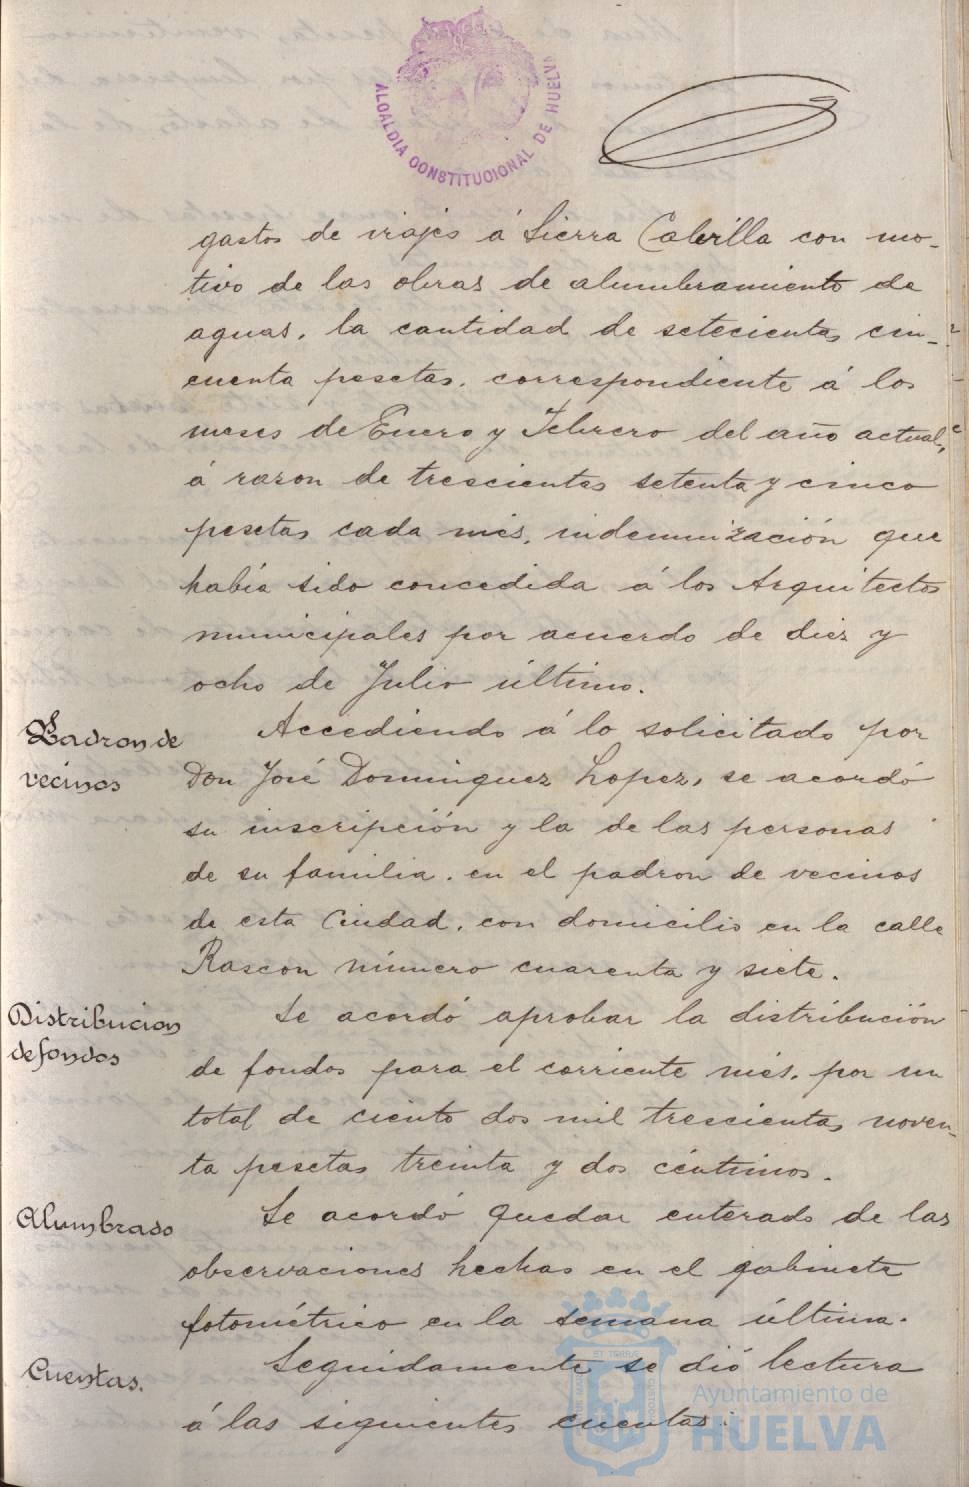 ALCALDIA CONSTITUCIONAL DE HUELVA
gastos de viajes á Sierra Cabrilla con mo-
tivo de las obras de alumbramiento de
aguas, la cantidad de setecientas cin-
cuenta pesetas, correspondiente á los
meses de Enero y Febrero del año actual,
á razon de trescientas setenta y cinco
pesetas cada més, indemnización que
había sido concedida á los Arquitectos
municipales por acuerdo de diez y
ocho de Julio último.
Padron de
vecinos
Accediendo á lo solicitado por
Don José Dominguez Lopez, se acordó
su inscripción y la de las personas
de su familia, en el padron de vecinos
de esta Ciudad, con domicilio en la calle
Rascon número cuarenta y siete.
Distribucion
de fondos
Se acordó aprobar la distribución
de fondos para el corriente més, por un
total de ciento dos mil trescientas noven-
ta pesetas treinta y dos céntimos.
Alumbrado
Se acordó quedar enterado de las
observaciones hechas en el gabinete
fotométrico en la semana última.
Cuentas.
Seguidamente se dió lectura
á las siguientes cuentas:
Ayuntamiento de
HUELVA